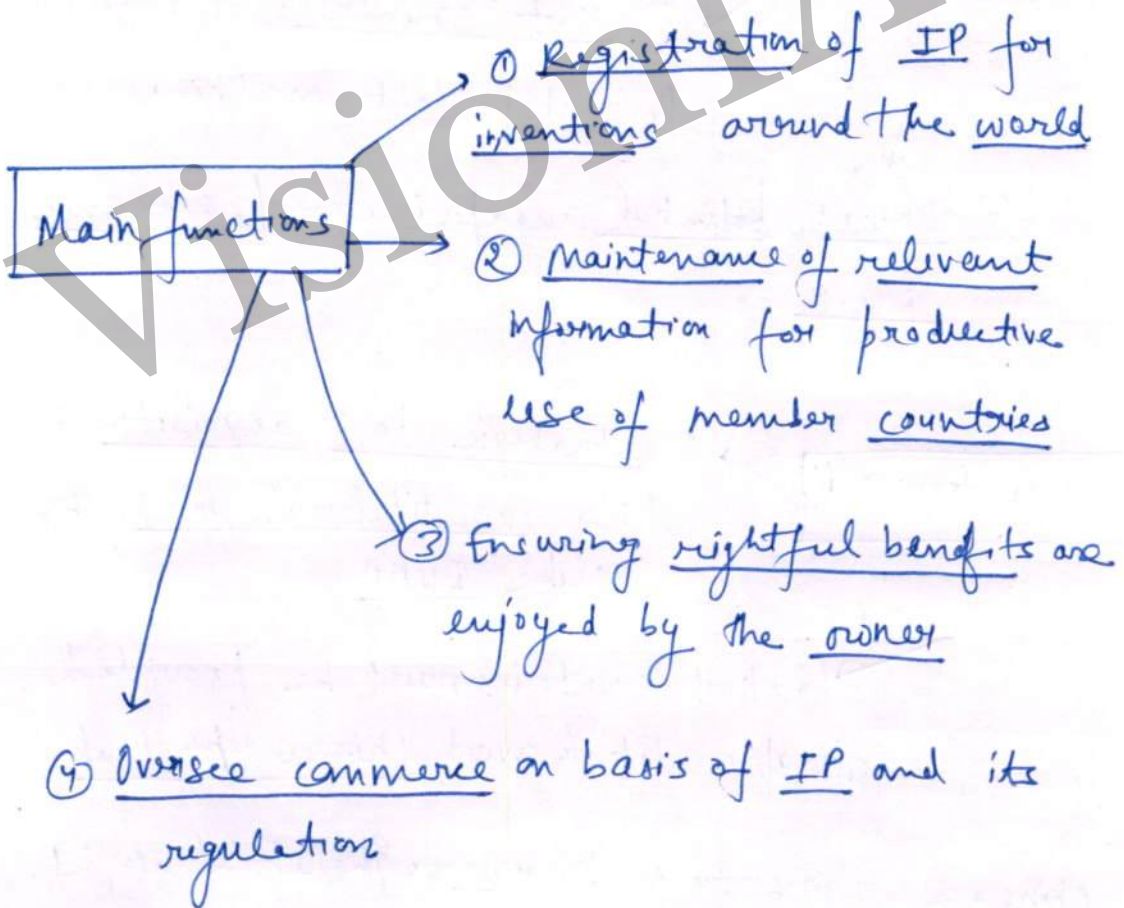 ① Registration of IP for
inventions around the world
Main functions
② Maintenance of relevant
information for productive
use of member countries
③ Ensuring rightful benefits are
enjoyed by the owner
④ Oversee commerce on basis of IP and its
regulation